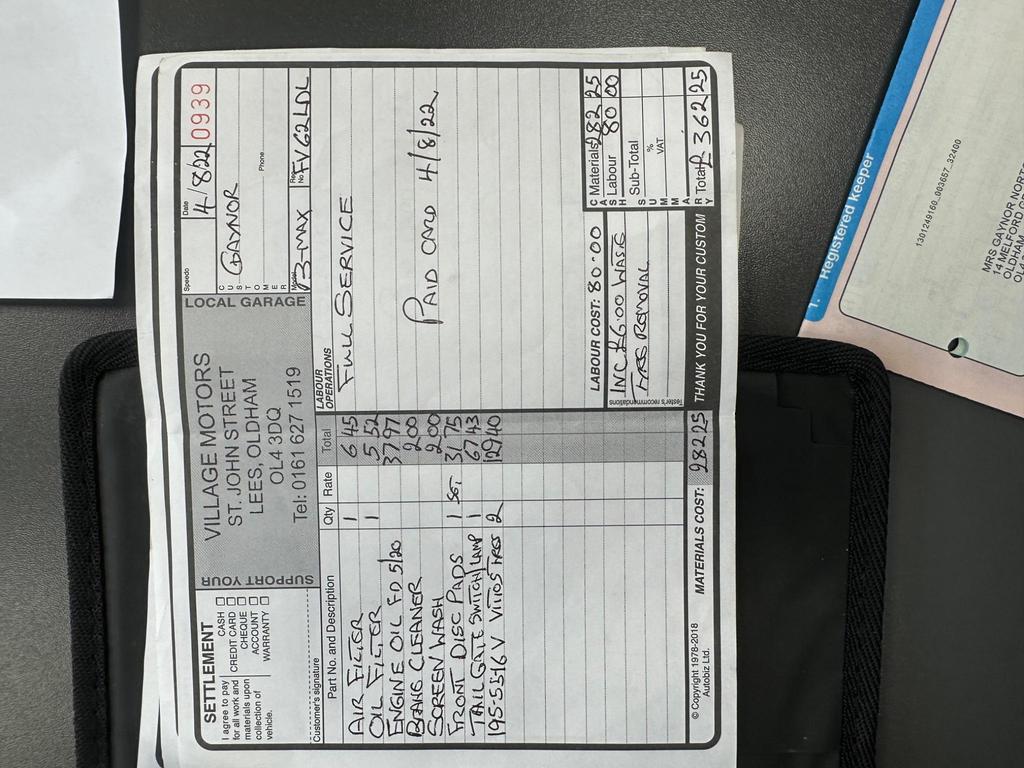 SETTLEMENT
I agree to pay
for all work and
materials upon
collection of
vehicle.
CASH
CREDIT CARD
CHEQUE
ACCOUNT
WARRANTY
Customer's signature
SUPPORT YOUR
LOCAL GARAGE
VILLAGE MOTORS
ST. JOHN STREET
LEES, OLDHAM
OL4 3DQ
Tel: 0161 627 1519
Speedo
Date 4/8/22 0939
CUSTOMER
GAYNOR
Phone
Model B-MAX Reg. No FV62LDL
Part No. and Description Qty Rate Total
AIR FILTER 1 6 45
OIL FILTER 1 5 52
ENGINE OIL F.D 5/20 37 97
BRAKE CLEANER 2 00
SCREEN WASH 2 00
FRONT DISC PADS 1 SET 31 75
TAIL GATE SWITCH/LAMP 1 67 43
195-55-16 V VITOS TYRES 2 129 40
MATERIALS COST: 282 25
© Copyright 1978-2018
Autobiz Ltd.
LABOUR OPERATIONS
FULL SERVICE
PAID CARD 4/8/22
LABOUR COST: 80.00
Tester's recommendations
INC £6.00 WASTE
TYRES REMOVAL
THANK YOU FOR YOUR CUSTOM
CASH SUMMARY
Materials 282 25
Labour 80 00
Sub-Total
% VAT
Total £ 362 25
1. Registered keeper
1301249160_003657_32400
MRS GAYNOR NORT
14 MELFORD
OLDHAM